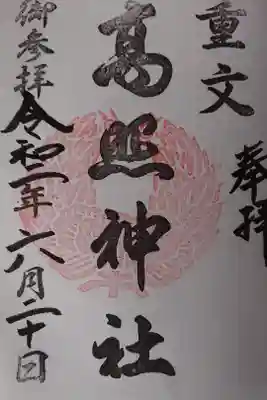 奉拝
重文
髙照神社
御参拝令和二年六月二十日